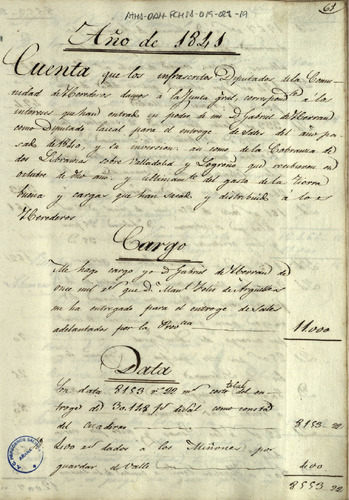 ATHA-DAH-FCHSA-019-028-19
61
Año de 1841
Cuenta que los infrascritos Diputados de la Comu-
nidad de Herederos damos à la Junta gral, correspond.te a los
intereses que han entrado en poder de mi D. Gabriel de Herran
como Diputado laical para el entrego de Sales del año pa-
sado de 1840, y su inversion: asi como de la Cobranza de
dos Libranzas sobre Valladolid y Logroño que recibieron en
octubre de dho año y ultimamente del gasto de la Tierra
buena y cargas que han sacado y distribuido à los
Herederos
Cargo
Me hago cargo yo D. Gabriel de Herran de
once mil r.s que D. Man.l Velez de Arguello
me ha entregado para el entrego de Sales
adelantados por la
11.000
Data
Son data 8153 r.s 22 m.s coste total del en-
trego de 30.148 f.s de sal, como consta
del cuaderno
8153-22
400 r.s dados a los Miñones por
guardar el Valle
400
8553 22